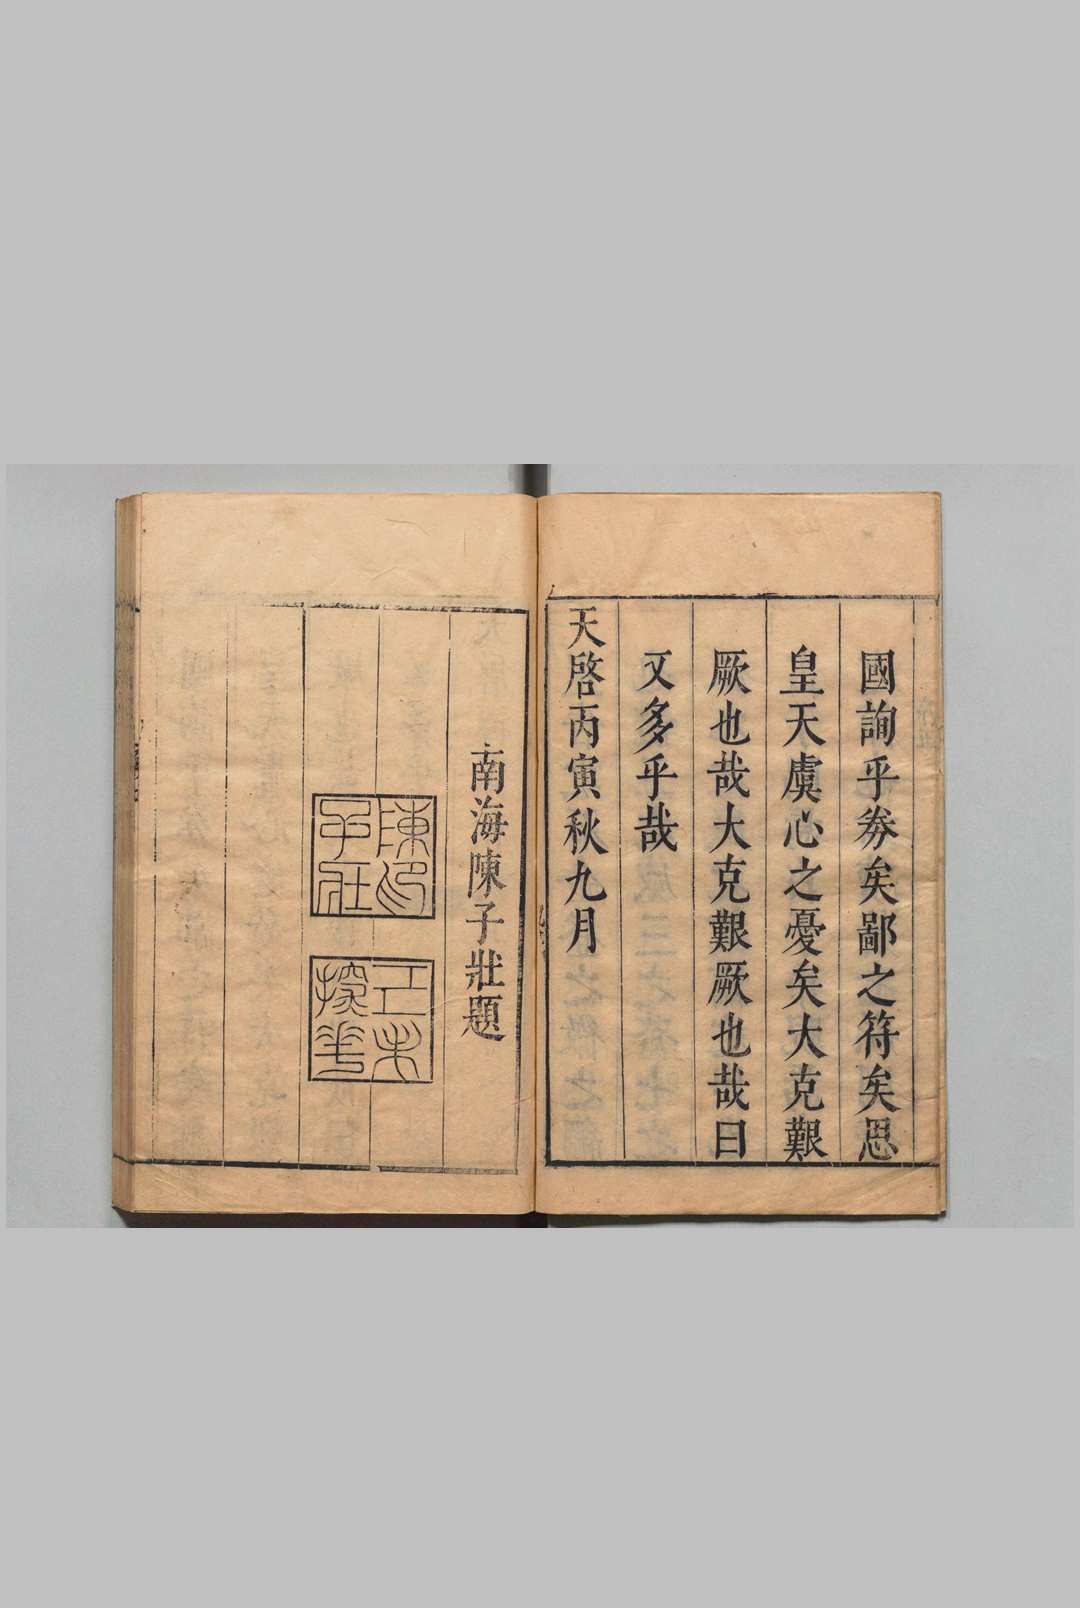 國詢乎劵矣鄙之符矣思
皇天虞心之憂矣大克艱
厥也哉大克艱厥也哉曰
又多乎哉
天啓丙寅秋九月
南海陳子壯題
陳印
子壯